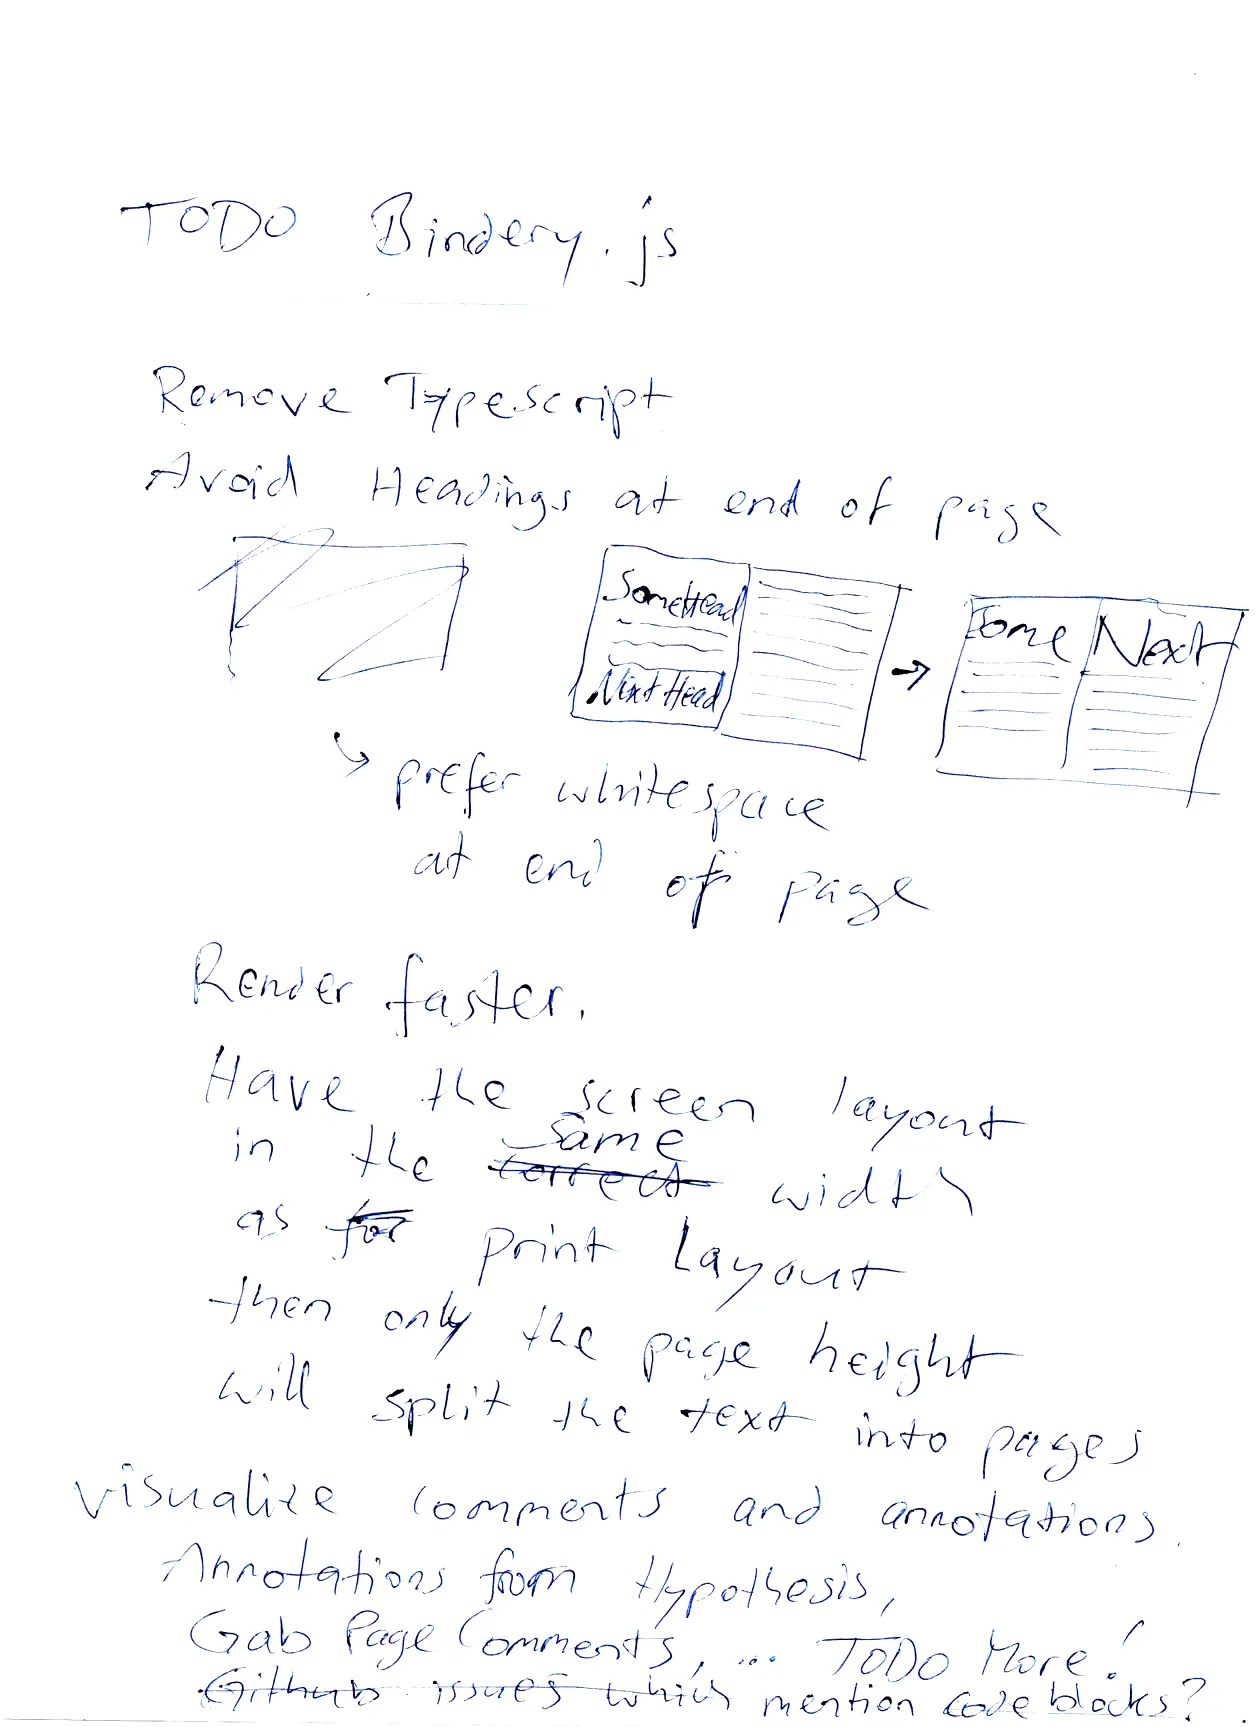 TODO Bindery.js
Remove Typescript
Avoid Headings at end of page
SomeHead
Next Head
Some
Next
prefer whitespace
at end of page
Render faster.
Have the screen layout
same
in the correct width
as for print layout
then only the page height
will split the text into pages
visualize comments and annotations.
Annotations from Hypothesis,
Gab Page Comments, ... TODO More!
Github issues which mention code blocks?